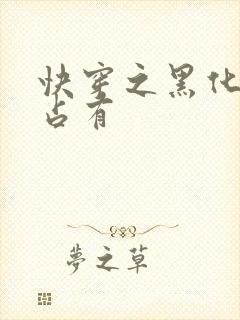 快穿之黑化
占有
夢之草